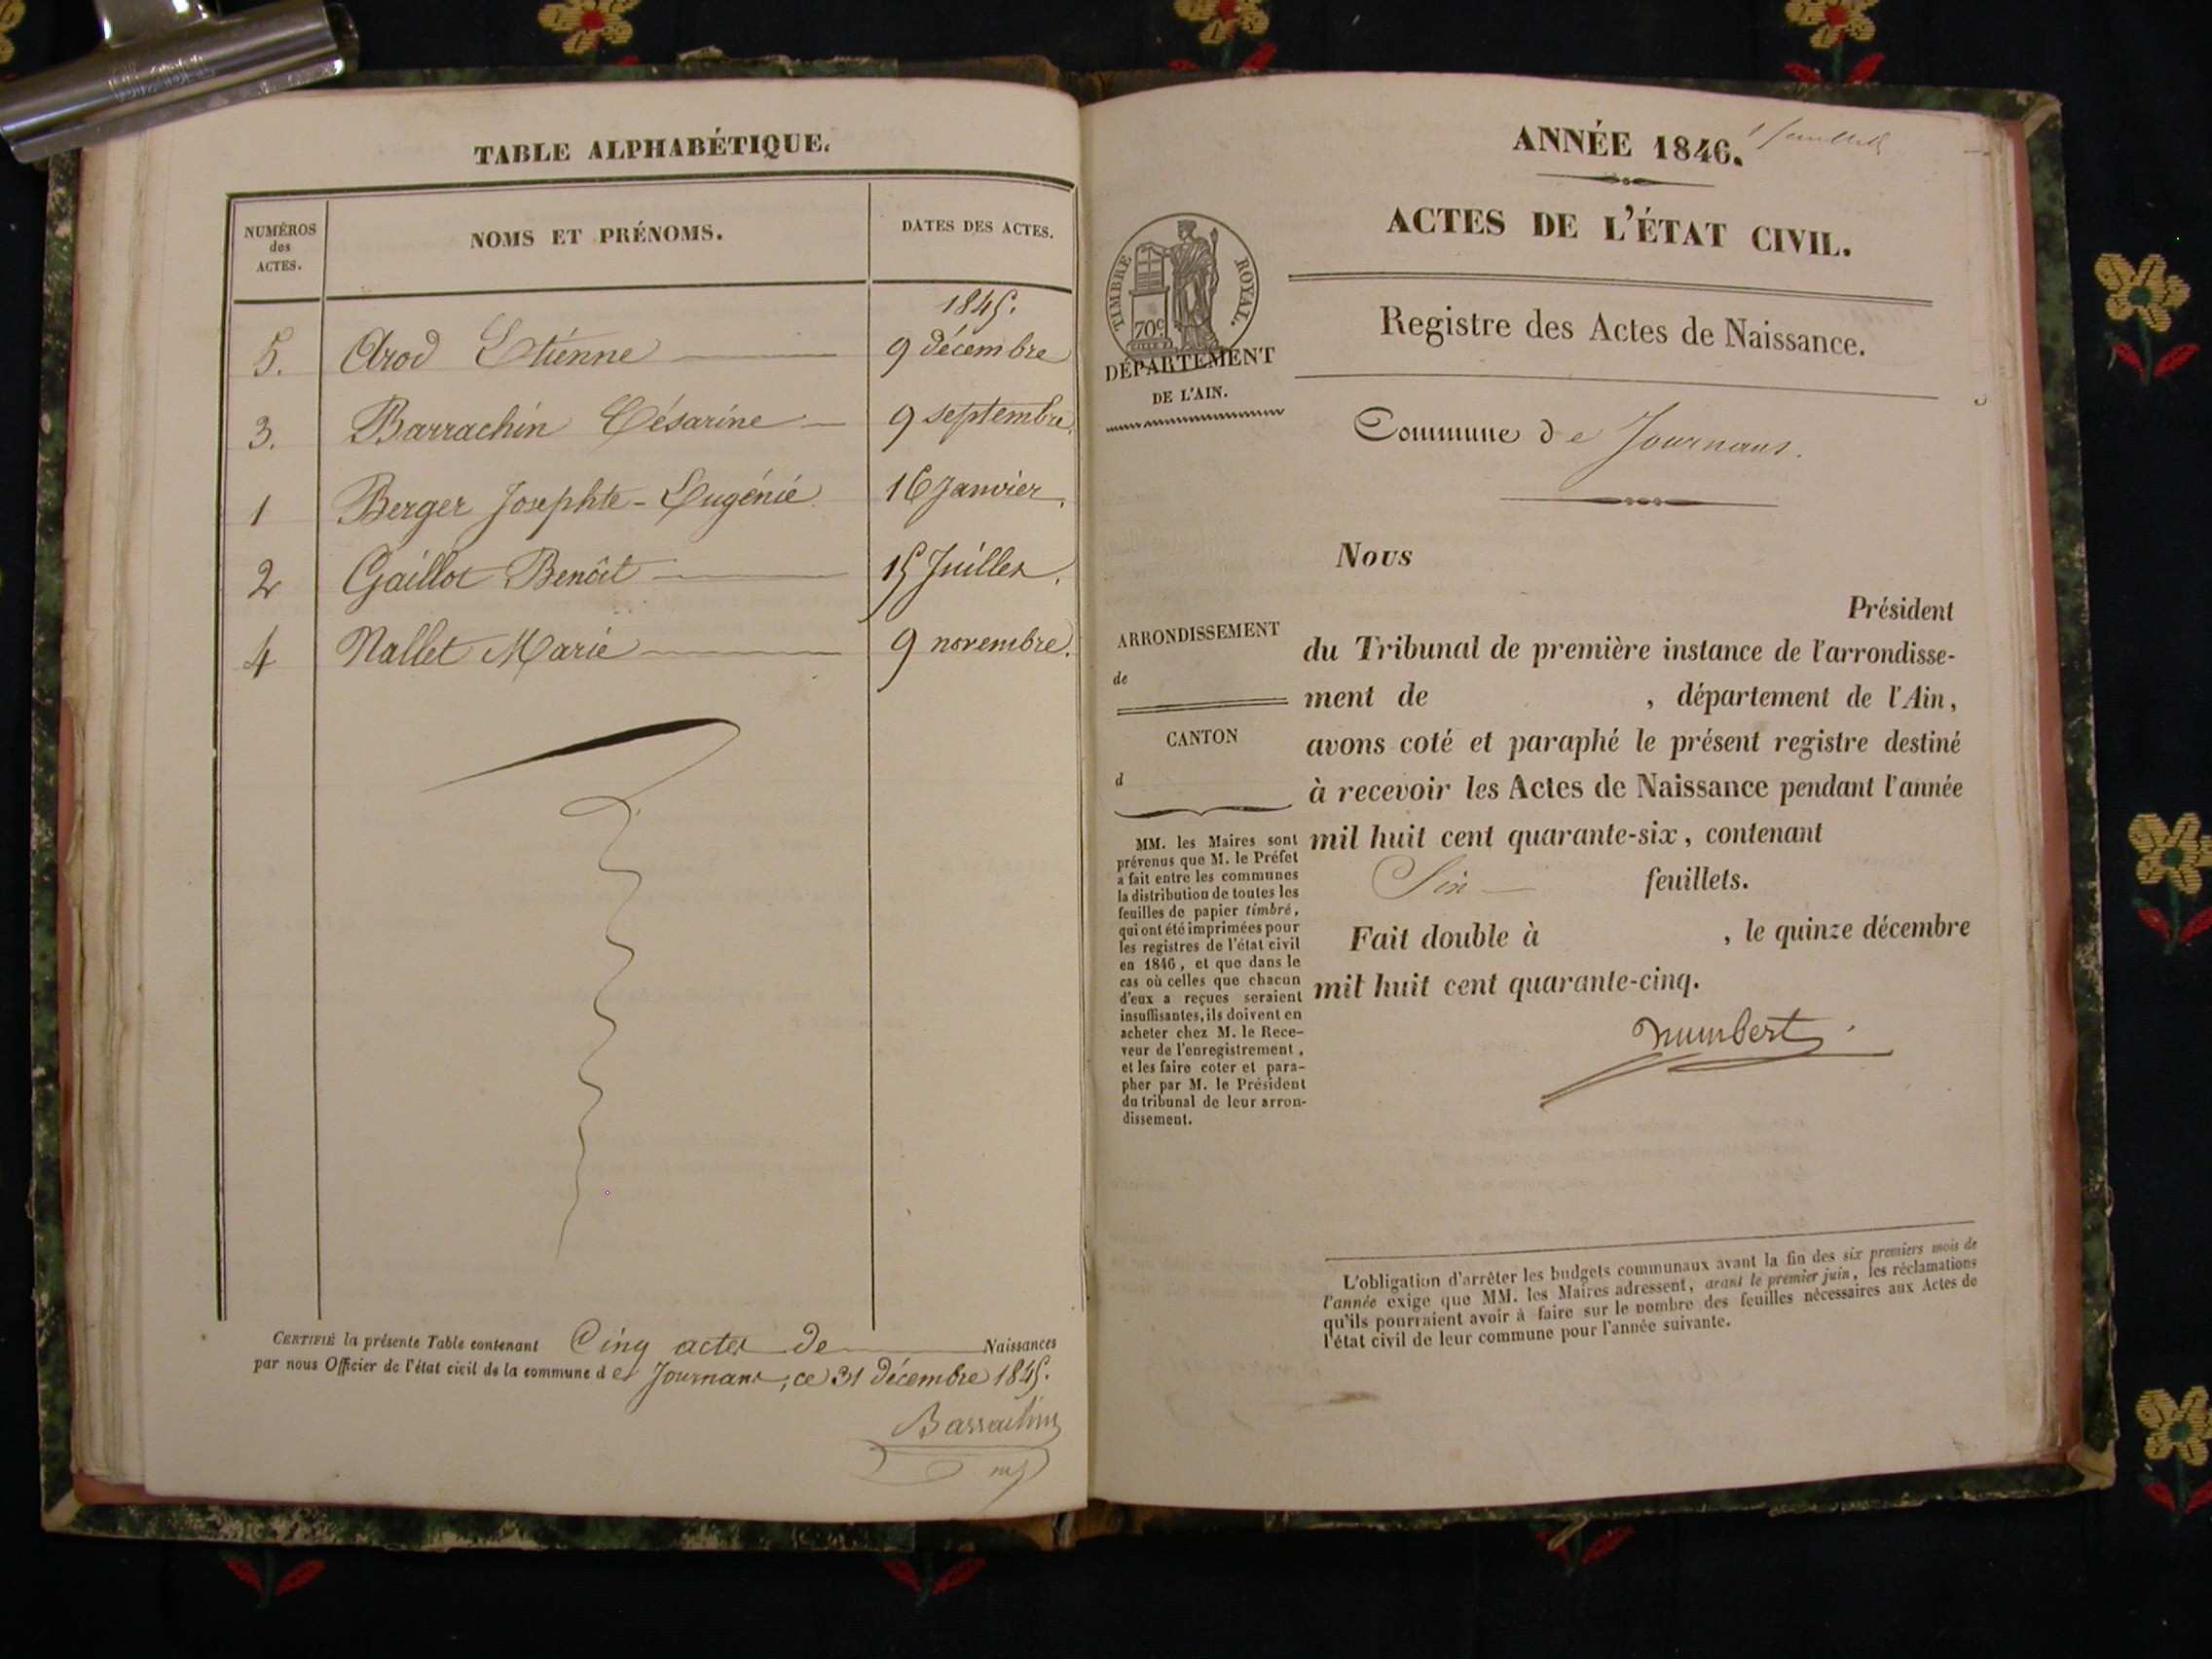 TABLE ALPHABÉTIQUE.
NUMÉROS
des
ACTES.
NOMS ET PRÉNOMS.
DATES DES ACTES.
1845.
5. Arod Etienne 9 décembre
3. Barrachin Césarine 9 septembre.
1 Berger Josephte-Eugénie 16 Janvier.
2 Gaillot Benoit 15 Juillet.
4 Nallet Marie 9 novembre.
CERTIFIÉ la présente Table contenant Cinq actes de Naissances
par nous Officier de l'état civil de la commune de Journans, ce 31 décembre 1845.
Barrachin
ANNÉE 1846.
ACTES DE L'ÉTAT CIVIL.
TIMBRE ROYAL.
70c
DÉPARTEMENT
DE L'AIN.
Registre des Actes de Naissance.
Commune de Journans.
Nous
Président
du Tribunal de première instance de l'arrondisse-
ment de , département de l'Ain,
avons coté et paraphé le présent registre destiné
à recevoir les Actes de Naissance pendant l'année
mil huit cent quarante-six, contenant
Six feuillets.
Fait double à , le quinze décembre
mil huit cent quarante-cinq.
ARRONDISSEMENT
de
CANTON
d
MM. les Maires sont
prévenus que M. le Préfet
a fait entre les communes
la distribution de toutes les
feuilles de papier timbré,
qui ont été imprimées pour
les registres de l'état civil
en 1846, et que dans le
cas où celles que chacun
d'eux a reçues seraient
insuffisantes, ils doivent en
acheter chez M. le Rece-
veur de l'enregistrement,
et les faire coter et para-
pher par M. le Président
du tribunal de leur arron-
dissement.
L'obligation d'arrêter les budgets communaux avant la fin des six premiers mois de
l'année exige que MM. les Maires adressent, avant le premier juin, les réclamations
qu'ils pourraient avoir à faire sur le nombre des feuilles nécessaires aux Actes de
l'état civil de leur commune pour l'année suivante.